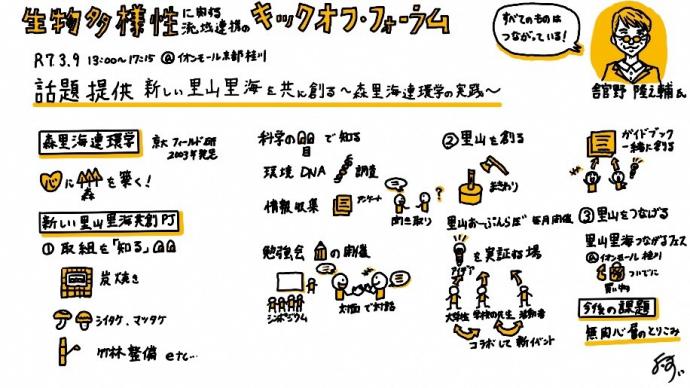 生物多様性に関する流域連携のキックオフ・フォーラム
R7.3.9 13:00〜17:15 @イオンモール京都桂川
すべてのものは
つながっている!
話題提供 新しい里山里海を共に創る〜森里海連環学の実践〜
舘野 隆之輔氏
森里海連環学
京大 フィールド研
2003年発足
心に森を築く!
新しい里山里海共創PJ
①取組を「知る」
炭焼き
シイタケ、マツタケ
竹林整備 etc…
科学の目で知る
環境DNA調査
情報収集
アンケート
聞き取り
?
勉強会の開催
シンポジウム
対面で対話
②里山を創る
まきわり
里山おーぷんらぼ 毎月開催
アイデアを実証する場
大学生
コラボして新イベント
ガイドブック
一緒に創る
③里山をつなげる
里山里海つながるフェス
@イオンモール桂川
ついでに
買い物
今後の課題
無関心層のとりこみ